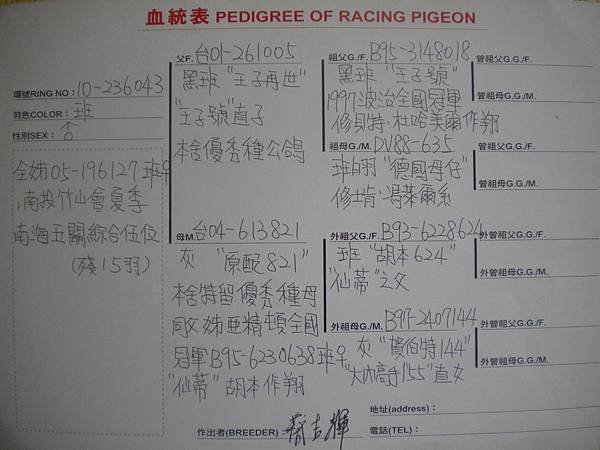 血統表 PEDIGREE OF RACING PIGEON
環號RING NO：10-236043
羽色COLOR：班
性別SEX：
全姊05-196127班♀
南投竹山會夏季
南海五關綜合伍位
(殘15羽)
父F. 台01-261005
黑班 "王子再世"
"王子號"直子
本舍優秀種公鴿
母M. 台04-613821
灰 "原配821"
本舍特留優秀種母
同父姊亞精頓全國
冠軍B95-6230638班♀
"仙蒂" 胡本作翔
祖父G./F. B95-3148018
黑班 "王子號"
1997波治全國冠軍
修貝特·杜哈美爾作翔
祖母G./M. DV88-635
班白羽 "德國母仔"
修士肯·馮萊爾系
外祖父G./F. B93-6228624
班 "胡本624"
"仙蒂"之父
外祖母G./M. B97-2407144
灰 "賀伯特144"
"大內高手155"直女
曾祖父G.G./F.
曾祖母G.G./M.
曾祖父G.G./F.
曾祖母G.G./M.
外曾祖父G.G./F.
外曾祖母G.G./M.
外曾祖父G.G./F.
外曾祖母G.G./M.
作出者(BREEDER)：蔡吉輝
地址(address)：
電話(TEL)：